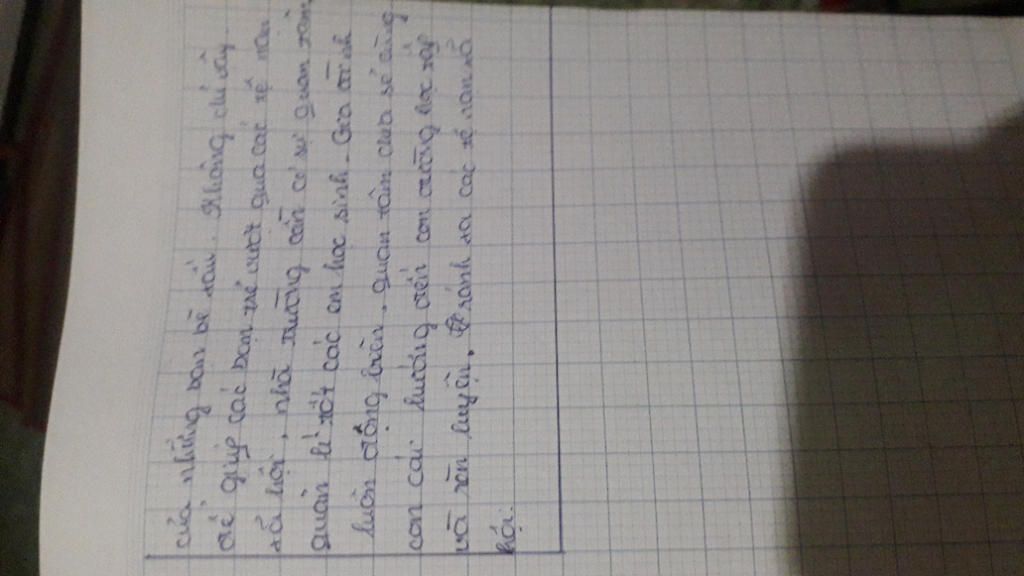 của những bạn bè xấu. Không chỉ vậy
để giúp các bạn trẻ vượt qua các tệ nạn
xã hội, nhà trường cần có sự quan tâm,
quản lí tốt các em học sinh. Gia đình
luôn động biên, quan tâm chia sẻ cùng
con cái hướng đến con đường học tập
và rèn luyện, tránh xa các tế nạn xã
hội.